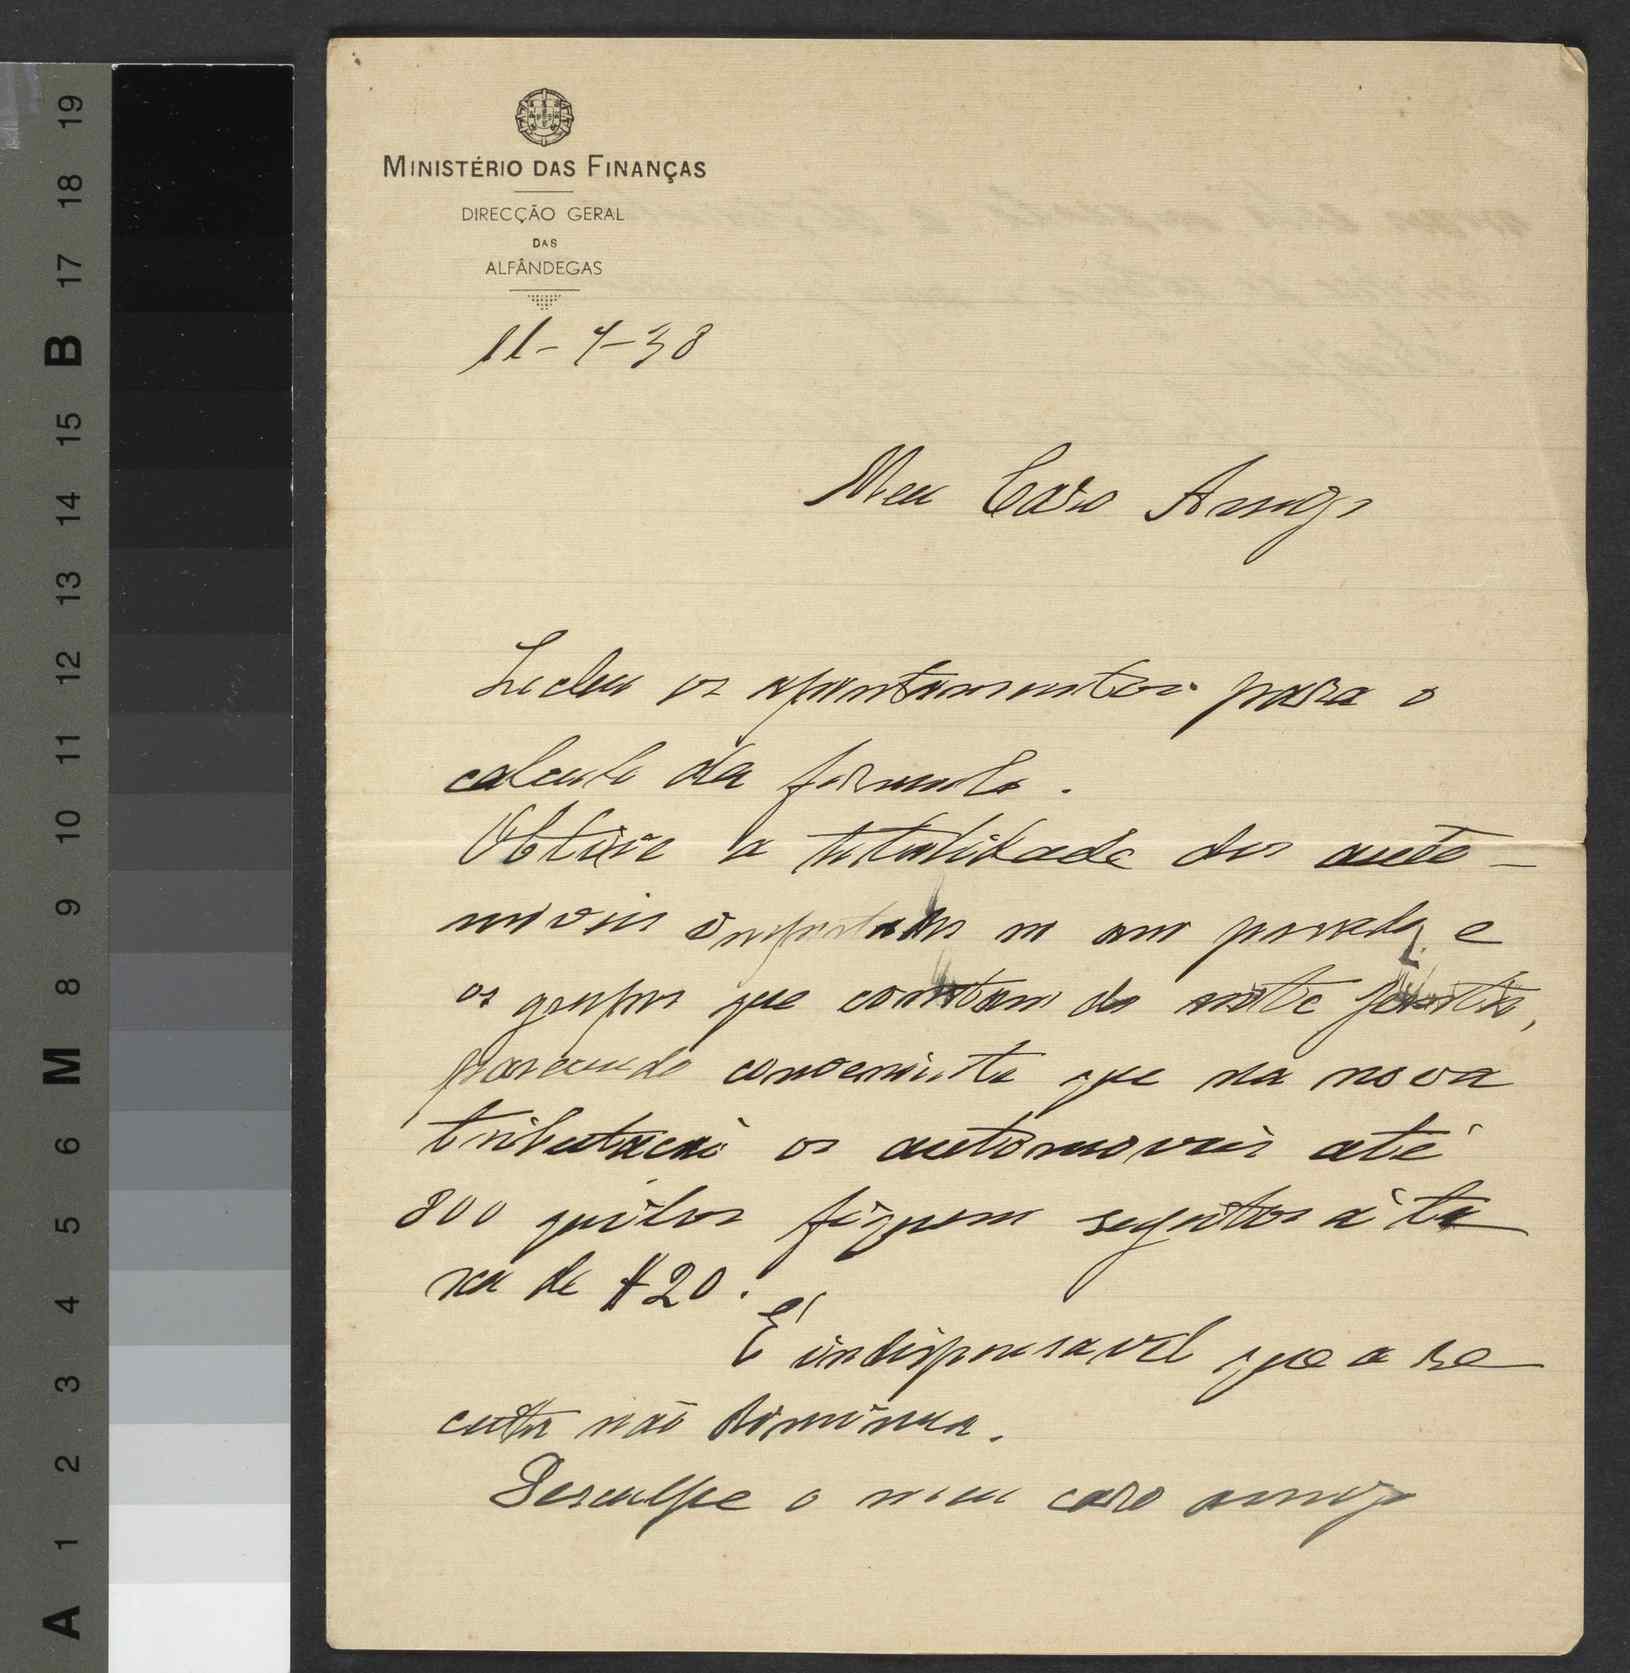 MINISTÉRIO DAS FINANÇAS
DIRECÇÃO GERAL
DAS
ALFÂNDEGAS
11-4-38
Meu Caro Amigo
os apontamentos para o
calculo da formula.
Obtive a totalidade dos auto-
moveis importados no ano passado, e
os grupos que constam da nota junta,
parecendo conveniente que na nova
tributação os automoveis até
800 quilos fiquem sugeitos á ta
xa de $20.
É indispensavel que a re
ceita não diminua.
Desculpe o meu caro amigo
19
18
17
B
15
14
13
12
11
10
9
8
M
6
5
4
3
2
1
A